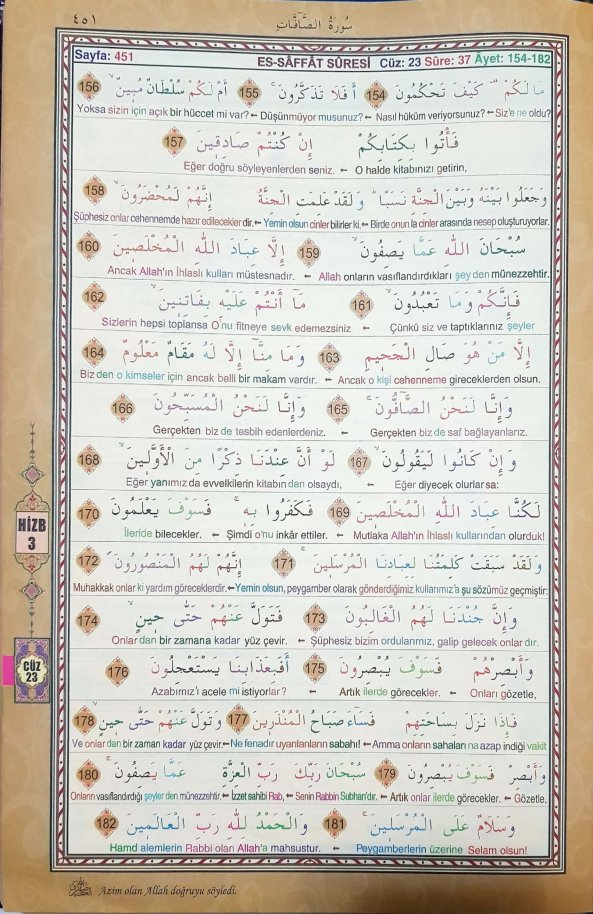 ٤٥١
سُورَةُ الصَّافَّاتِ
Sayfa: 451 ES-SÂFFÂT SÛRESİ Cüz: 23 Sûre: 37 Âyet: 154-182
مَا لَكُمْ۠ كَيْفَ تَحْكُمُونَ 154 اَفَلَا تَذَكَّرُونَۚ 155 اَمْ لَكُمْ سُلْطَانٌ مُبٖينٌۙ 156
Yoksa sizin için açık bir hüccet mi var? ← Düşünmüyor musunuz? ← Nasıl hüküm veriyorsunuz? ← Siz'e ne oldu?
فَأْتُوا بِكِتَابِكُمْ اِنْ كُنْتُمْ صَادِقٖينَ 157
Eğer doğru söyleyenlerden seniz. ← O halde kitabınızı getirin,
وَجَعَلُوا بَيْنَهُ وَبَيْنَ الْجِنَّةِ نَسَبًاؕ وَلَقَدْ عَلِمَتِ الْجِنَّةُ اِنَّهُمْ لَمُحْضَرُونَۙ 158
Şüphesiz onlar cehennemde hazır edilecekler dir. ← Yemin olsun cinler bilirler ki, ← Birde onun la cinler arasında nesep oluşturuyorlar.
سُبْحَانَ اللّٰهِ عَمَّا يَصِفُونَۙ 159 اِلَّا عِبَادَ اللّٰهِ الْمُخْلَصٖينَ 160
Ancak Allah'ın İhlaslı kulları müstesnadır. ← Allah onların vasıflandırdıkları şey den münezzehtir.
فَاِنَّكُمْ وَمَا تَعْبُدُونَۙ 161 مَٓا اَنْتُمْ عَلَيْهِ بِفَاتِنٖينَۙ 162
Sizlerin hepsi toplansa O'nu fitneye sevk edemezsiniz ← Çünkü siz ve taptıklarınız şeyler
اِلَّا مَنْ هُوَ صَالِ الْجَحٖيمِ 163 وَمَا مِنَّٓا اِلَّا لَهُ مَقَامٌ مَعْلُومٌۙ 164
Biz den o kimseler için ancak belli bir makam vardır. ← Ancak o kişi cehenneme gireceklerden olsun.
وَاِنَّا لَنَحْنُ الصَّٓافُّونَۚ 165 وَاِنَّا لَنَحْنُ الْمُسَبِّحُونَ 166
Gerçekten biz de tesbih edenlerdeniz. ← Gerçekten biz de saf bağlayanlarız.
وَاِنْ كَانُوا لَيَقُولُونَۙ 167 لَوْ اَنَّ عِنْدَنَا ذِكْرًا مِنَ الْاَوَّلٖينَۙ 168
Eğer yanımız da evvelkilerin kitabın dan olsaydı, ← Eğer diyecek olurlar sa:
لَكُنَّا عِبَادَ اللّٰهِ الْمُخْلَصٖينَ 169 فَكَفَرُوا بِهٖۚ فَسَوْفَ يَعْلَمُونَ 170
İleride bilecekler. ← Şimdi o'nu inkâr ettiler. ← Mutlaka Allah'ın İhlaslı kullarından olurduk!
وَلَقَدْ سَبَقَتْ كَلِمَتُنَا لِعِبَادِنَا الْمُرْسَلٖينَۚ 171 اِنَّهُمْ لَهُمُ الْمَنْصُورُونَۖ 172
Muhakkak onlar ki yardım göreceklerdir. ← Yemin olsun, peygamber olarak gönderdiğimiz kullarımız'a şu sözümüz geçmiştir:
وَاِنَّ جُنْدَنَا لَهُمُ الْغَالِبُونَ 173 فَتَوَلَّ عَنْهُمْ حَتّٰى حٖينٍۙ 174
Onlar dan bir zamana kadar yüz çevir. ← Şüphesiz bizim ordularımız, galip gelecek onlar dır.
وَاَبْصِرْهُمْ فَسَوْفَ يُبْصِرُونَ 175 اَفَبِعَذَابِنَا يَسْتَعْجِلُونَ 176
Azabımız'ı acele mi istiyorlar? ← Artık ilerde görecekler. ← Onları gözetle,
فَاِذَا نَزَلَ بِسَاحَتِهِمْ فَسَٓاءَ صَبَاحُ الْمُنْذَرٖينَ 177 وَتَوَلَّ عَنْهُمْ حَتّٰى حٖينٍۙ 178
Ve onlar dan bir zaman kadar yüz çevir. ← Ne fenadır uyarılanların sabahı! ← Amma onların sahaları na azap indiği vakit
وَاَبْصِرْ فَسَوْفَ يُبْصِرُونَ 179 سُبْحَانَ رَبِّكَ رَبِّ الْعِزَّةِ عَمَّا يَصِفُونَۚ 180
Onların vasıflandırdığı şeyler den münezzehtir. ← İzzet sahibi Rab, ← Senin Rabbin Subhan'dır. ← Artık onlar ilerde görecekler. ← Gözetle,
وَسَلَامٌ عَلَى الْمُرْسَلٖينَۚ 181 وَالْحَمْدُ لِلّٰهِ رَبِّ الْعَالَمٖينَ 182
Hamd alemlerin Rabbi olan Allah'a mahsustur. ← Peygamberlerin üzerine Selam olsun!
HİZB
3
CÜZ
23
Azim olan Allah doğruyu söyledi.